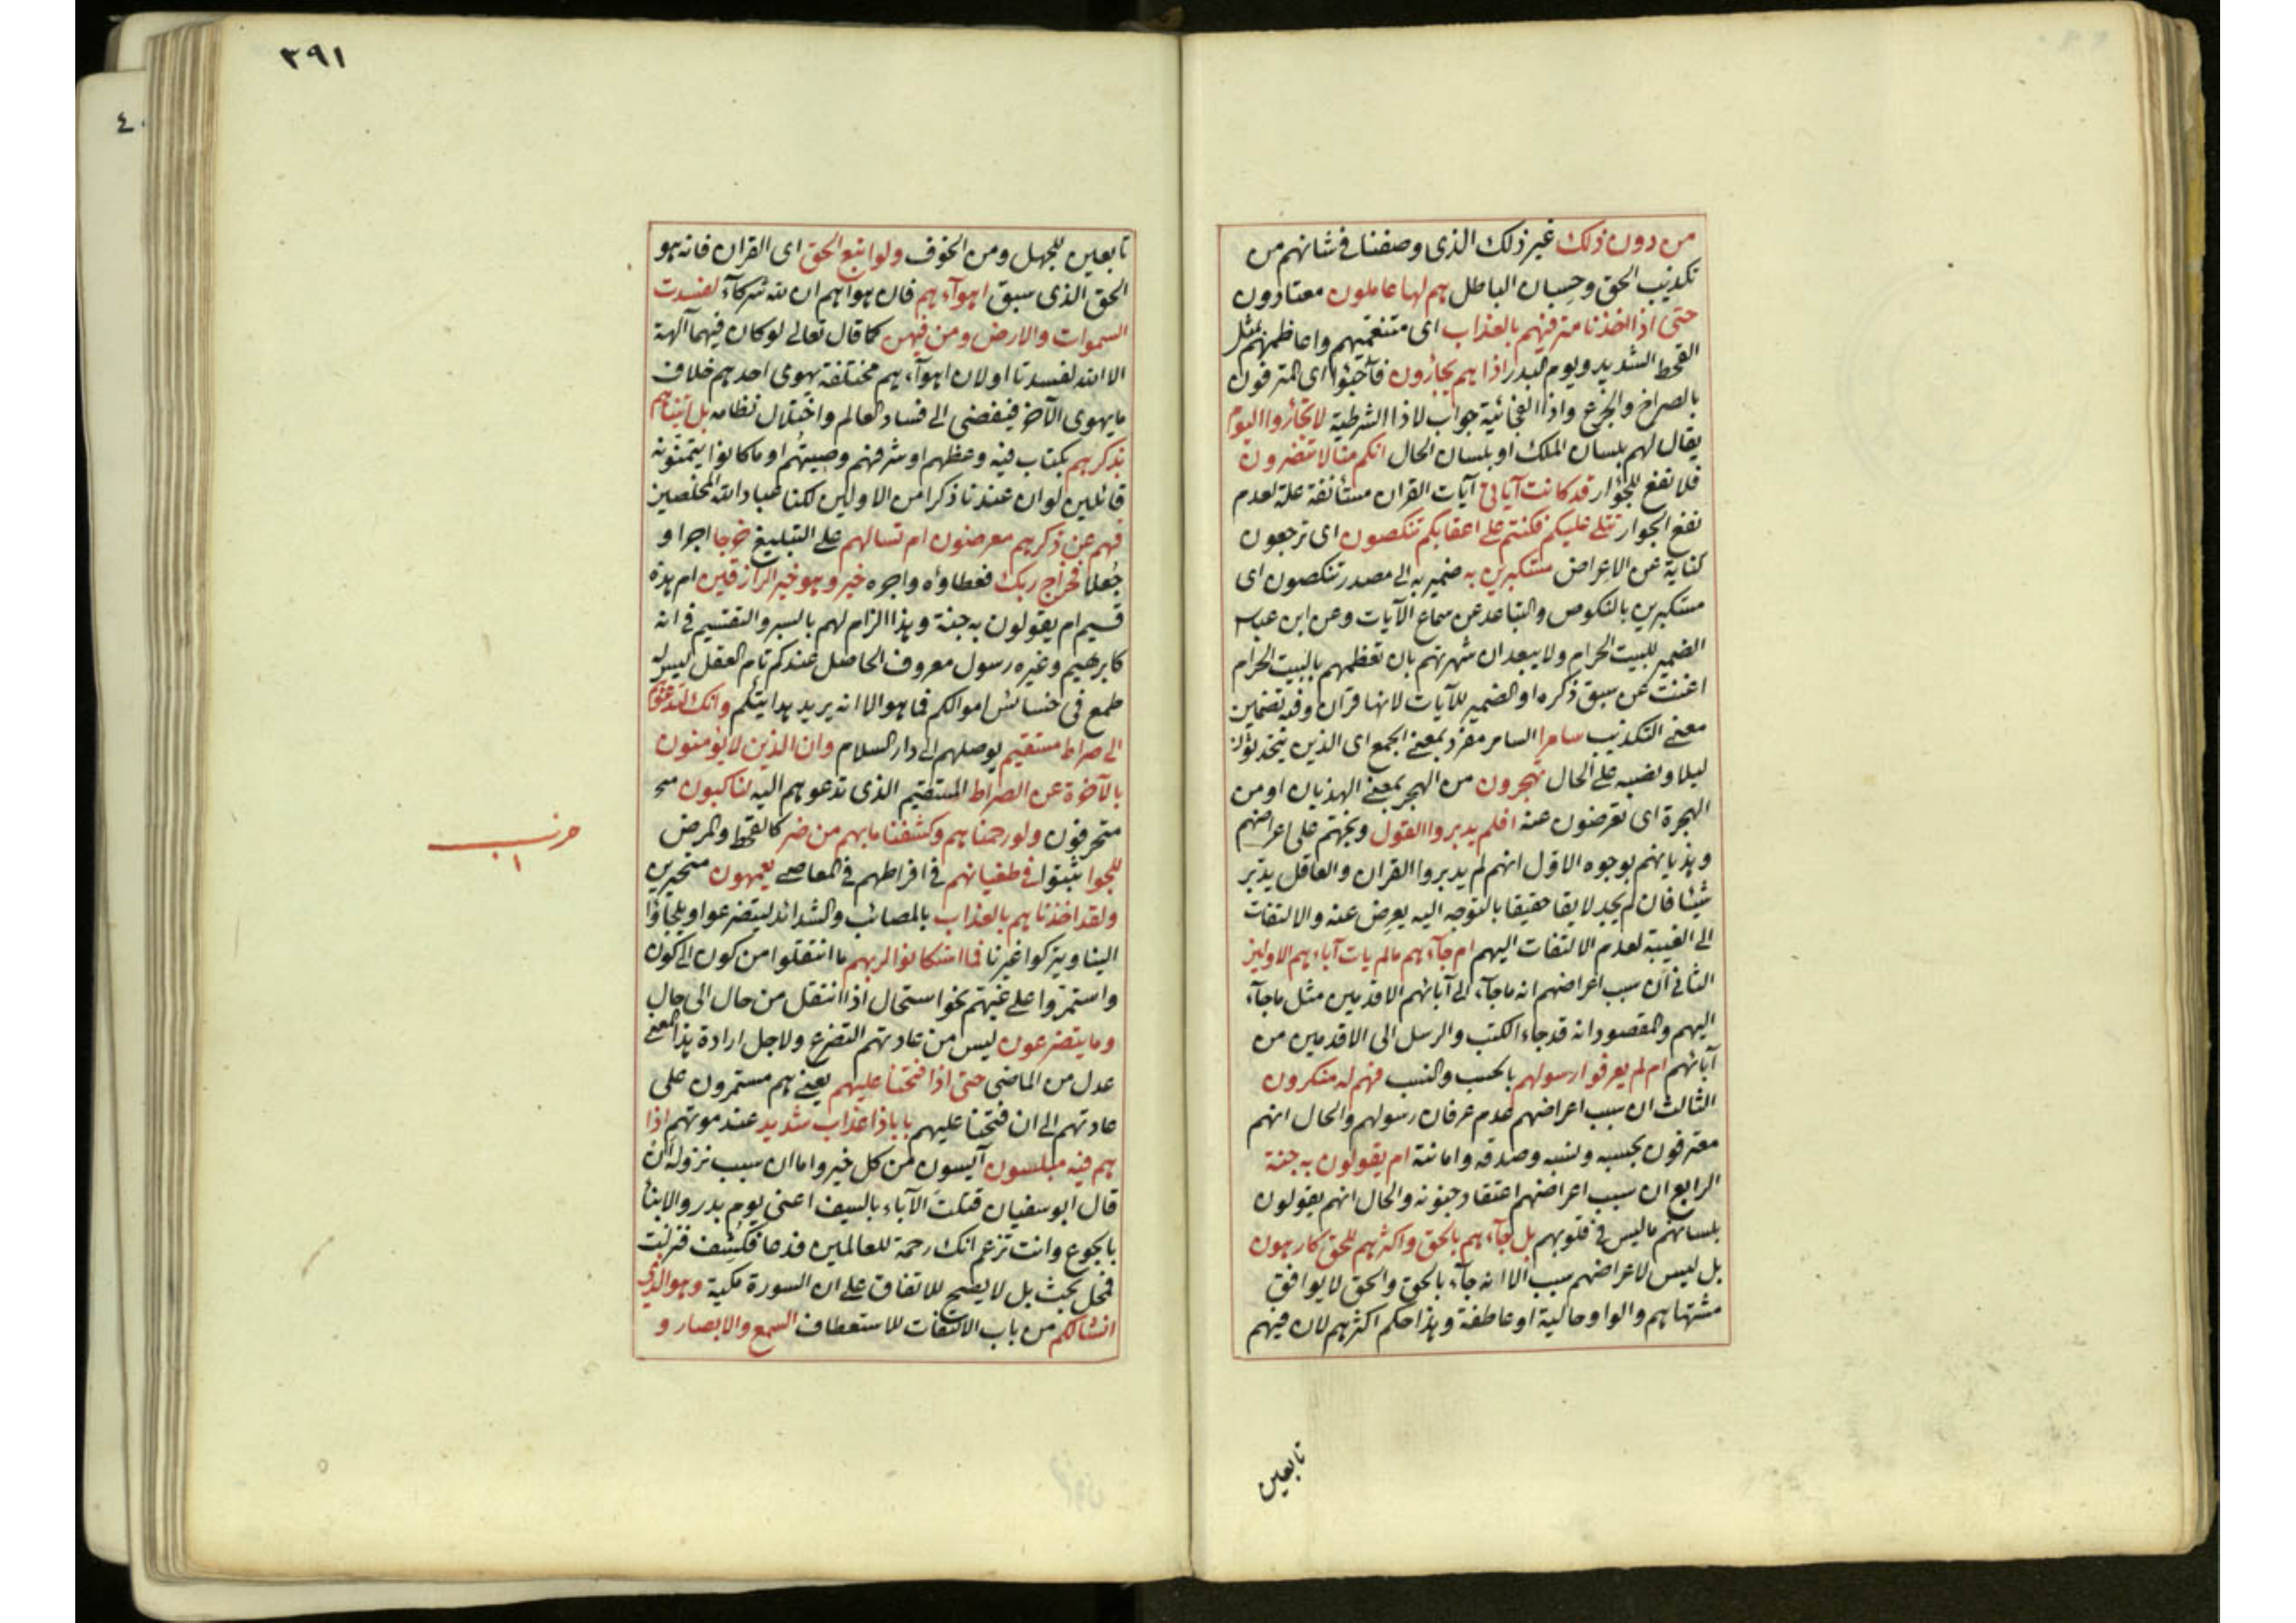 من دون ذلك غير ذلك الذى وصفنا فى شانهم من
تكذيب الحق وحسبان الباطل هم لها عاملون معتادون
حتى اذا اخذنا مترفيهم بالعذاب اى متنعميهم واعاظمهم بمثل
القحط الشديد ويوم البدر اذا هم يجأرون فأجيئوا اى المترفون
بالصراخ والجزع واذا الفجائية جواب لاذا الشرطية لا تجأروا اليوم
يقال لهم بلسان الملك او بلسان الحال انكم منا لا تنصرون
فلا نفع للجؤار قد كانت آياتى آيات القران مستأنفة علة لعدم
نفع الجوار تتلى عليكم فكنتم على اعقابكم تنكصون اى ترجعون
كناية عن الاعراض مستكبرين به ضمير به الى مصدر تنكصون اى
مستكبرين بالنكوص والتباعد عن سماع الآيات وعن ابن عباس
الضمير للبيت الحرام ولا يبعد ان شهرتهم بان تعظمهم بالبيت الحرام
اغنت عن سبق ذكره او الضمير للآيات لانها قران وفيه تضمين
معنى التكذيب سامرا السامر مفرد بمعنى الجمع اى الذين يتحدثون
ليلا ونصبه على الحال تهجرون من الهجر بمعنى الهذيان او من
الهجرة اى تعرضون عنه افلم يدبروا القول وبخهم على اعراضهم
وهذيانهم بوجوه الاول انهم لم يدبروا القران والعاقل يدبر
شيئا فان لم يجد لايقا حقيقا بالتوجه اليه يعرض عنه والالتفات
الى الغيبة لعدم الالتفات اليهم ام جآءهم مالم يات آباءهم الاولين
الثانى ان سبب اعراضهم انه ما جآء الى آبائهم الاقدمين مثل ما جآء
اليهم والمقصود انه قد جاء الكتب والرسل الى الاقدمين من
آبائهم ام لم يعرفوا رسولهم بالحسب والنسب فهم له منكرون
الثالث ان سبب اعراضهم عدم عرفان رسولهم والحال انهم
معترفون بحسبه ونسبه وصدقه وامانته ام يقولون به جنة
الرابع ان سبب اعراضهم اعتقاد جنونه والحال انهم يقولون
بلسانهم ما ليس فى قلوبهم بل جآءهم بالحق واكثرهم للحق كارهون
بل ليس لاعراضهم سبب الا انه جآء بالحق والحق لا يوافق
مشتهاهم والواو حالية او عاطفة وهذا حكم اكثرهم لان فيهم
تابعين
٣٩١
تابعين للجهل ومن الخوف ولو اتبع الحق اى القران فانه هو
الحق الذى سبق اهوآءهم فان هواهم ان لله شركآء لفسدت
السموات والارض ومن فيهن كما قال تعالى لو كان فيهما آلهة
الا الله لفسدتا او لان اهوآءهم مختلفة يهوى احدهم خلاف
ما يهوى الآخر فيفضى الى فساد العالم واختلال نظامه بل اتيناهم
بذكرهم بكتاب فيه وعظهم او شرفهم وصيتهم او ما كانوا يتمنونه
قائلين لو ان عندنا ذكرا من الاولين لكنا عباد الله المخلصين
فهم عن ذكرهم معرضون ام تسالهم على التبليغ خرجا اجرا و
جعلا فخراج ربك فعطاؤه واجره خير وهو خير الرازقين ام هذه
قسيم ام يقولون به جنة وهذا الزام لهم بالسبر والتقسيم فى انه
كابرهيم وغيره رسول معروف الحاصل عندكم تام العقل ليس له
طمع فى خسائس اموالكم فما هو الا انه يريد هدايتكم وانك لتدعوهم
الى صراط مستقيم يوصلهم الى دار السلام وان الذين لا يؤمنون
بالآخرة عن الصراط المستقيم الذى تدعوهم اليه لناكبون
متحرفون ولو رحمناهم وكشفنا ما بهم من ضر كالقحط والمرض
للجوا ثبتوا فى طغيانهم فى افراطهم فى المعاصى يعمهون متحيرين
ولقد اخذناهم بالعذاب بالمصائب والشدائد ليتضرعوا ويلجاؤا
الينا ويتركوا غيرنا فما استكانوا لربهم ما انتقلوا من كون الى كون
واستمروا على غيهم نحو استحال اذا انتقل من حال الى حال
وما يتضرعون ليس من عادتهم التضرع ولاجل ارادة هذا المعنى
عدل من الماضى حتى اذا فتحنا عليهم يعنى هم مستمرون على
عادتهم الى ان فتحنا عليهم بابا ذا عذاب شديد عند موتهم اذا
هم فيه مبلسون آيسون من كل خير واما ان سبب نزوله ان
قال ابو سفيان قتلت الآباء بالسيف اعنى يوم بدر والابنا
بالجوع وانت تزعم انك رحمة للعالمين فدعا فكشف فنزلت
فمحل بحث بل لا يصح للاتفاق على ان السورة مكية وهو الذى
انشالكم من باب الالتفات للاستعطاف السمع والابصار و
حزب
١